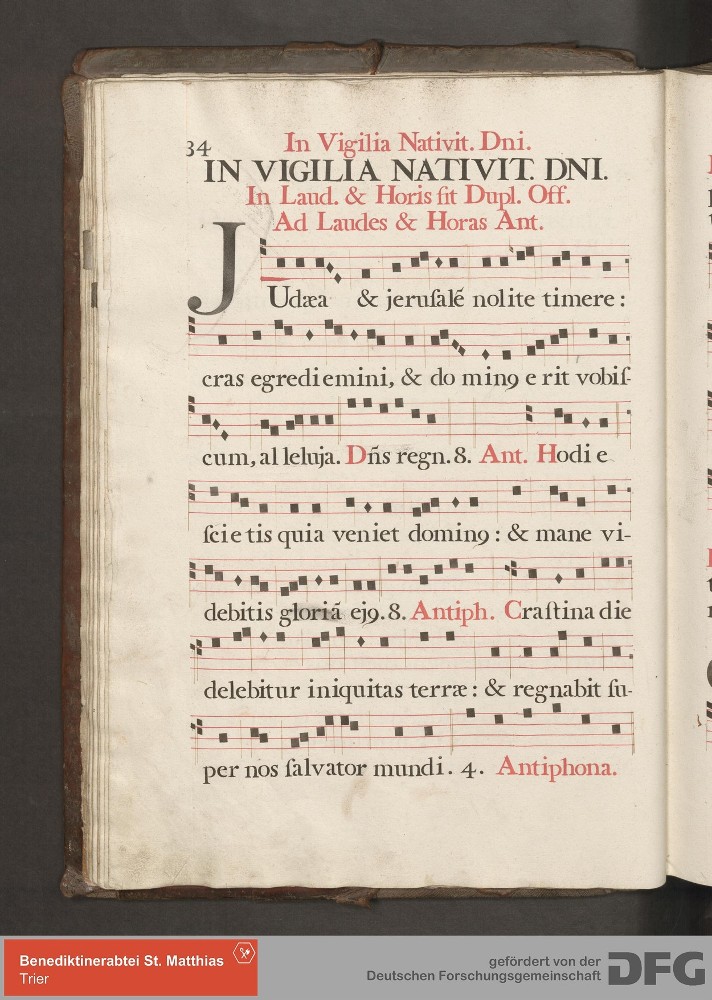 34
In Vigilia Nativit. Dni.
IN VIGILIA NATIVIT. DNI.
In Laud. & Horis fit Dupl. Off.
Ad Laudes & Horas Ant.
JUdæa & jeruſalẽ nolite timere :
cras egrediemini, & do minꝯ e rit vobiſ-
cum, al leluja. Dñs regn. 8. Ant. Hodi e
ſcie tis quia veniet dominꝯ : & mane vi-
debitis gloriã ejꝯ. 8. Antiph. Craſtina die
delebitur iniquitas terræ : & regnabit ſu-
per nos ſalvator mundi. 4. Antiphona.
Benediktinerabtei St. Matthias
Trier
gefördert von der
Deutschen Forschungsgemeinschaft
DFG